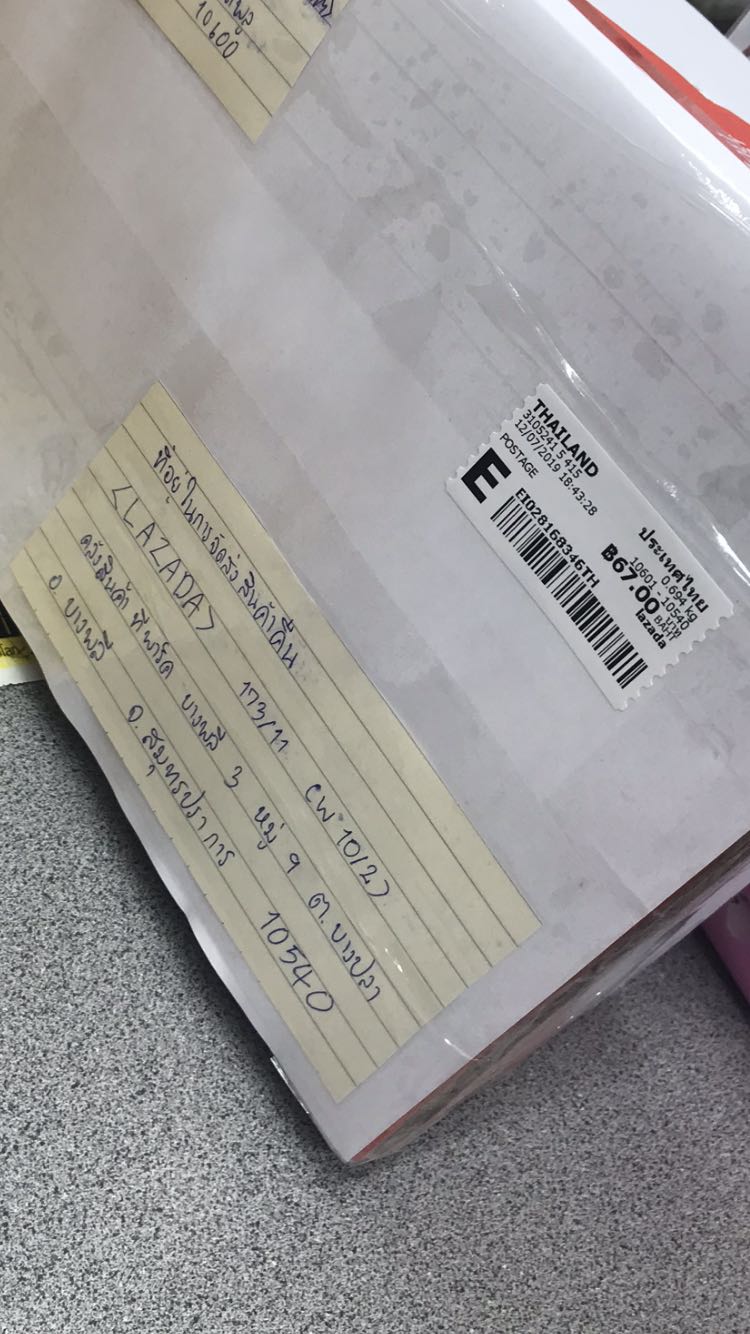 10600
THAILAND
3105241 5 415
12/07/2019 18:43:28
POSTAGE
E
EI028168346TH
ประเทศไทย
0.694 kg
10601 - 10540
฿67.00 บาท BAHT
lazada
ที่อยู่ในการจัดส่งสินค้าคืน
<LAZADA> 173/11 (W 10/2)
คลังสินค้า ทีพาร์ค บางพลี 3 หมู่ 9 ต. บางปลา
อ. บางพลี จ. สมุทรปราการ 10540